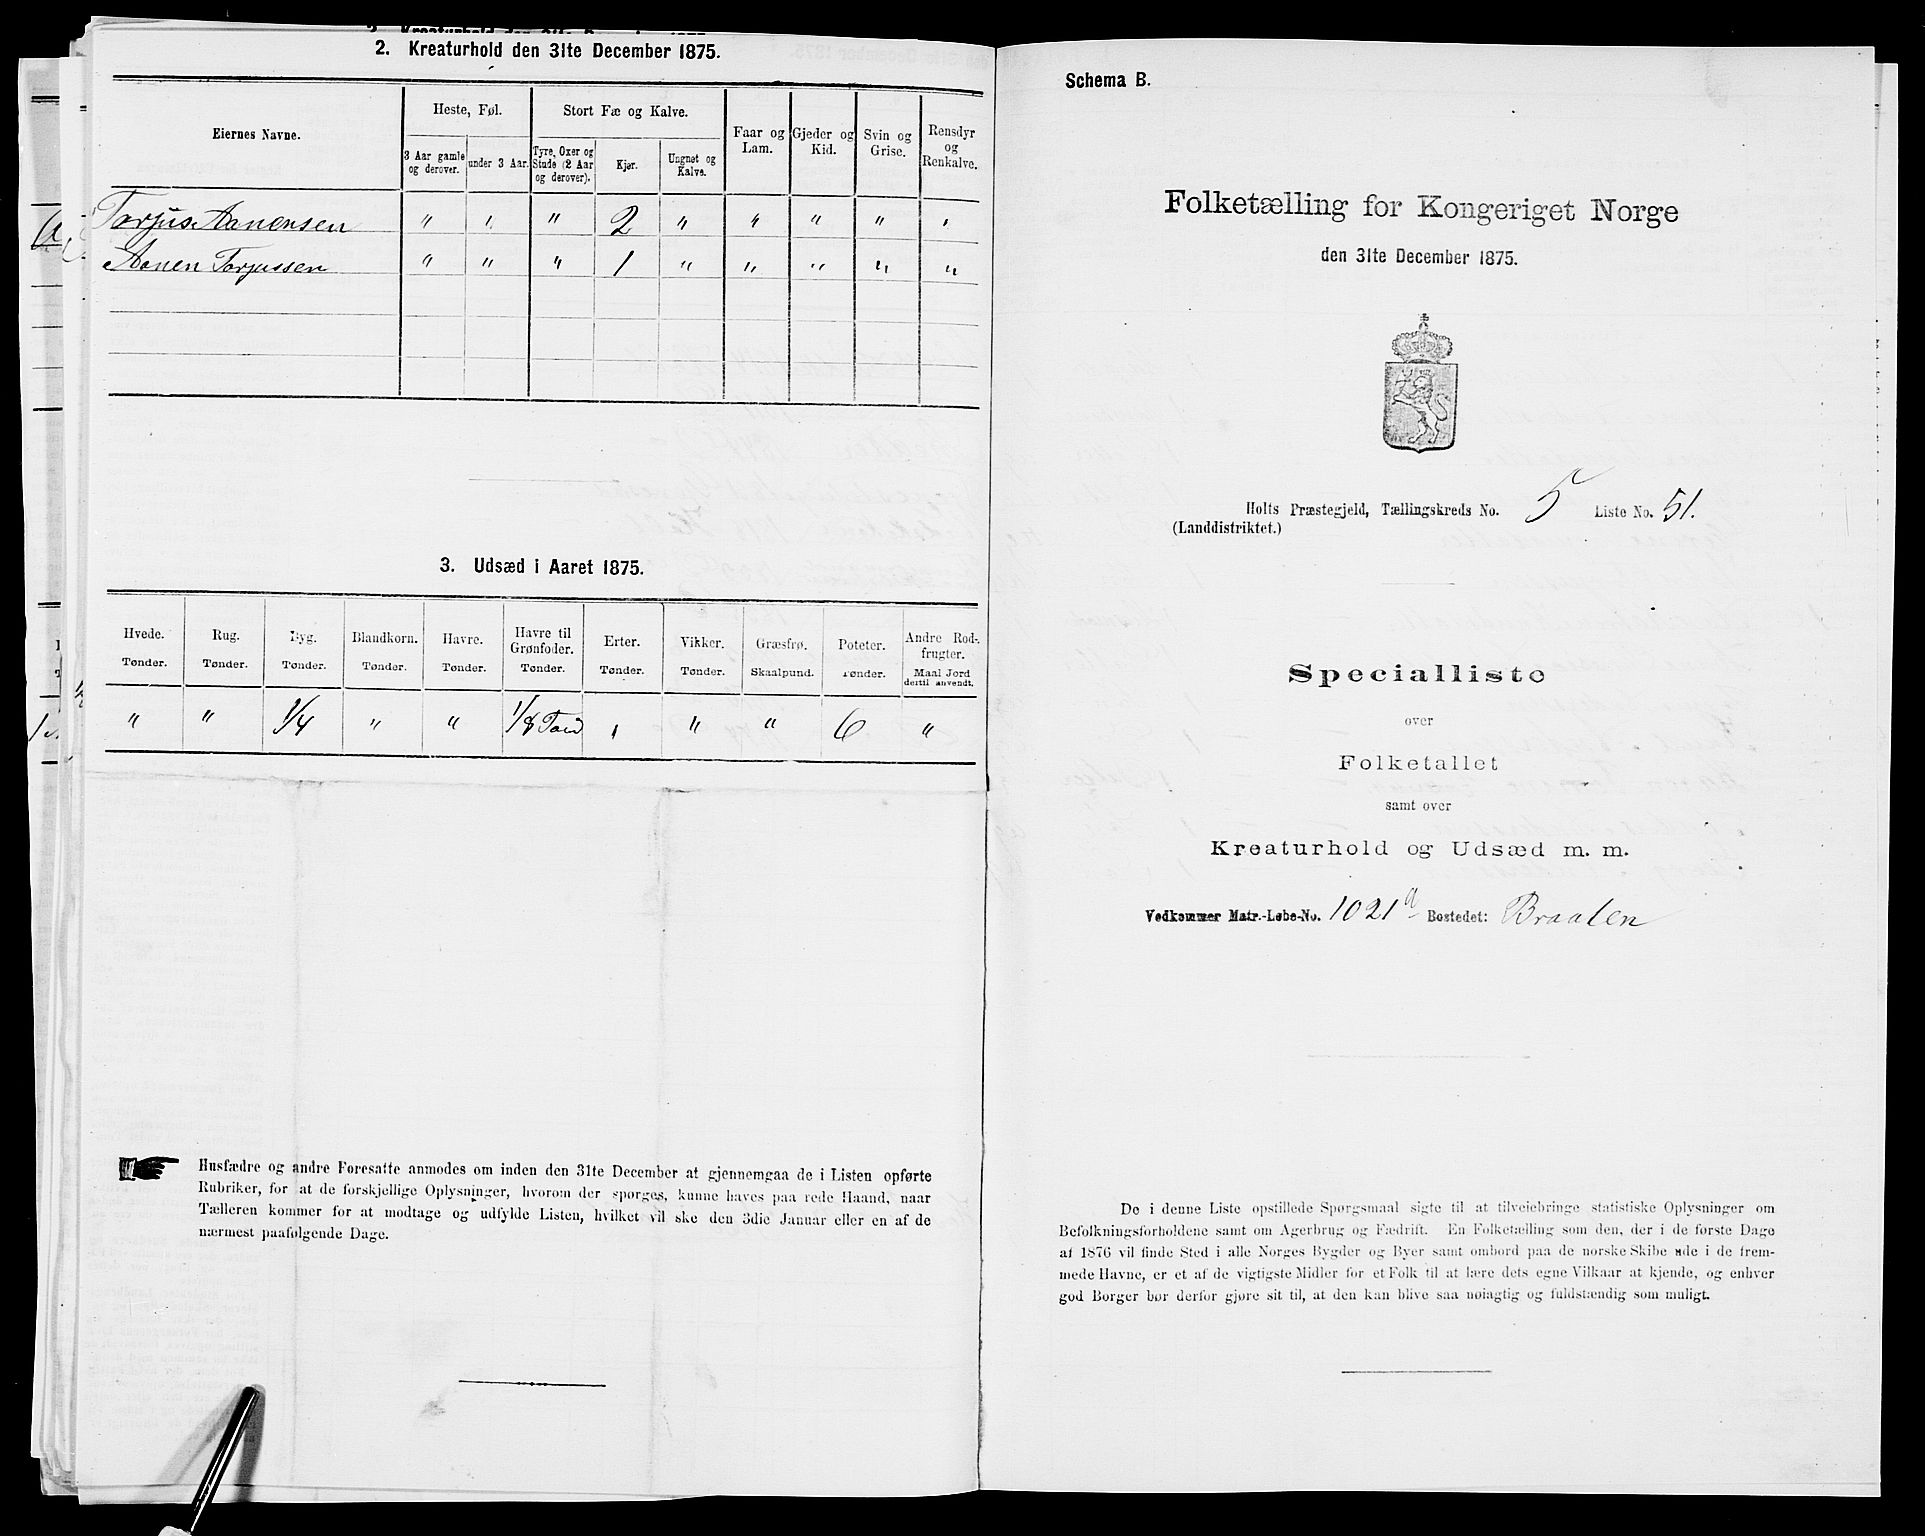 2. Kreaturhold den 31te December 1875.
Eiernes Navne.
Heste, Føl.
Stort Fæ og Kalve.
Faar og Lam.
Gjeder og Kid.
Svin og Grise.
Rensdyr og Renkalve.
3 Aar gamle og derover.
under 3 Aar.
Tyre, Oxer og Stude (2 Aar og derover).
Kjør.
Ungnøt og Kalve.
Torjus Aanensen " " " 2 " " " " "
Aanen Torjussen " " " 1 " " " " "
3. Udsæd i Aaret 1875.
Hvede. Rug. Byg. Blandkorn. Havre. Havre til Grønfoder. Erter. Vikker. Græsfrø. Poteter. Andre Rodfrugter.
Tønder. Tønder. Tønder. Tønder. Tønder. Tønder. Tønder. Tønder. Skaalpund. Tønder. Maal Jord dertil anvendt.
" " 1/4 " " 1/8 " " " 6 "
Husfædre og andre Foresatte anmodes om inden den 31te December at gjennemgaa de i Listen opførte
Rubriker, for at de forskjellige Oplysninger, hvorom der spørges, kunne haves paa rede Haand, naar
Tælleren kommer for at modtage og udfylde Listen, hvilket vil ske den 3die Januar eller en af de
nærmest paafølgende Dage.
Schema B.
Folketælling for Kongeriget Norge
den 31te December 1875.
Holts Præstegjeld, Tællingskreds No. 5 Liste No. 51.
(Landdistriktet.)
Specialliste
over
Folketallet
samt over
Kreaturhold og Udsæd m. m.
Vedkommer Matr.-Løbe-No. 1021a Bostedet: Braaten
De i denne Liste opstillede Spørgsmaal sigte til at tilveiebringe statistiske Oplysninger om
Befolkningsforholdene samt om Agerbrug og Fædrift. En Folketælling som den, der i de første Dage
af 1876 vil finde Sted i alle Norges Bygder og Byer samt ombord paa de norske Skibe ude i de frem-
mede Havne, er et af de vigtigste Midler for et Folk til at lære dets egne Vilkaar at kjende, og enhver
god Borger bør derfor gjøre sit til, at den kan blive saa nøiagtig og fuldstændig som muligt.